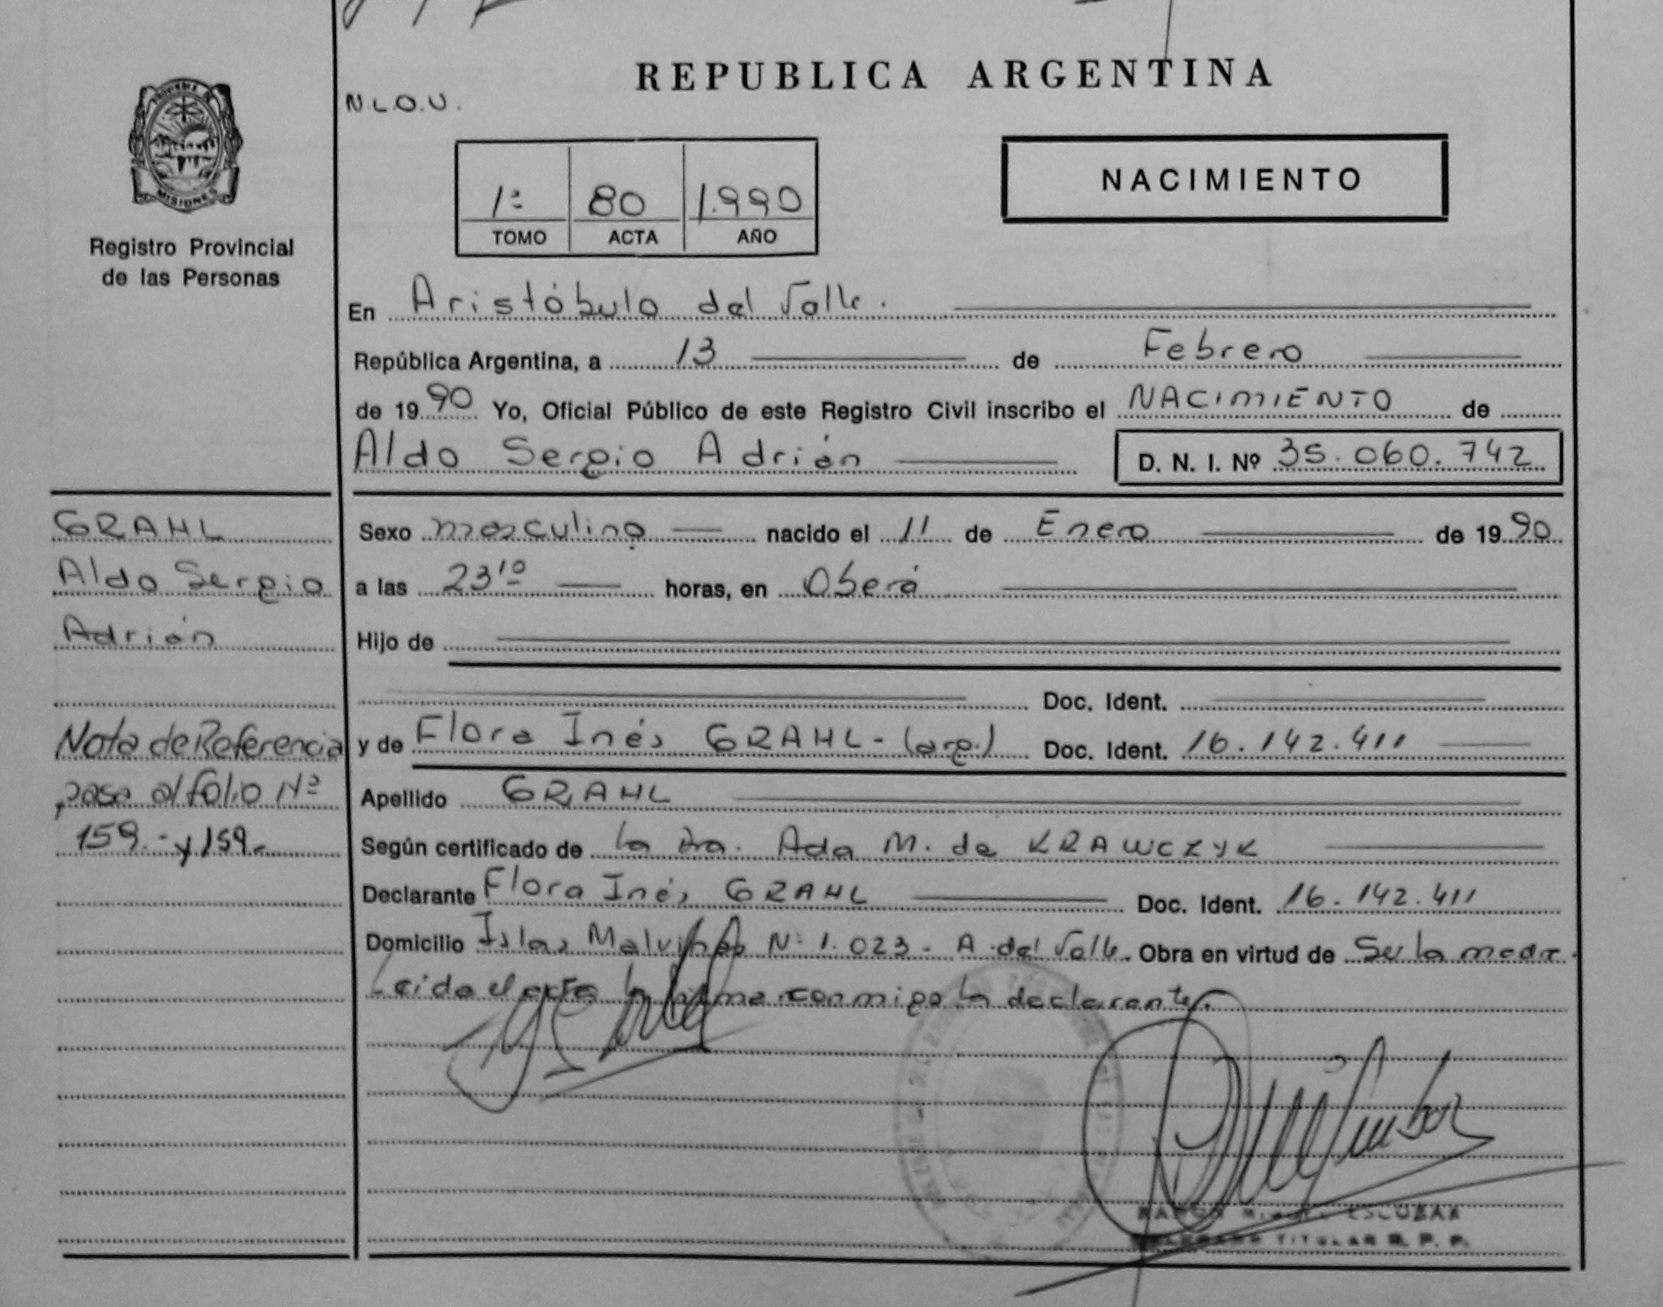 PROVINCIA DE
MISIONES
Registro Provincial
de las Personas
N.L.O.U.
REPUBLICA ARGENTINA
1º 80 1.990
TOMO ACTA AÑO
NACIMIENTO
En Aristóbulo del Valle.
República Argentina, a 13 de Febrero
de 1990 Yo, Oficial Público de este Registro Civil inscribo el NACIMIENTO de
Aldo Sergio Adrián D. N. I. Nº 35.060.742
GRAHL
Aldo Sergio
Adrián
Nota de Referencia
pasa al folio Nº
159.- y 159.-
Sexo masculino nacido el 11 de Enero de 1990
a las 23¹⁰ horas, en Oberá
Hijo de
Doc. Ident.
y de Flora Inés GRAHL- (arg.) Doc. Ident. 16.142.411
Apellido GRAHL
Según certificado de la Dra. Ada M. de KRAWCZYK
Declarante Flora Inés GRAHL Doc. Ident. 16.142.411
Domicilio Islas Malvinas Nº 1.023- A. del Valle. Obra en virtud de Ser la madre.
Leida el acta la firma conmigo la declarante.
RAMON MIGUEL ESCOBAR
DELEGADO TITULAR R. P. P.